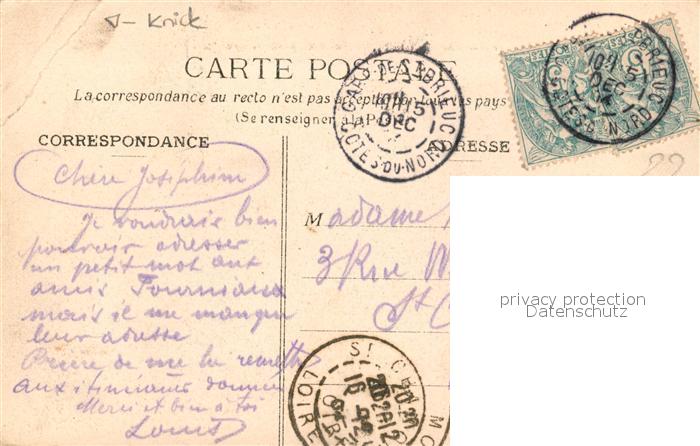 Knick
CARTE POSTALE
La correspondance au recto n'est pas acceptée par tous les pays
(Se renseigner à la Po
CORRESPONDANCE
ADRESSE
GARE DE ST BRIEUC
15
DEC
COTES-DU-NORD
BRIEUC
15
DEC
COTES-DU-NORD
Chère Joséphine
Je voudrais bien
pouvoir adresser
un petit mot aux
amis
mais il me manque
leur adresse
Prière de me la remettre
aux itinéraires donnés
Merci et bien à toi
Louis
Madame
3 Rue
St C
privacy protection
Datenschutz
ST C
LOIRE
16
22